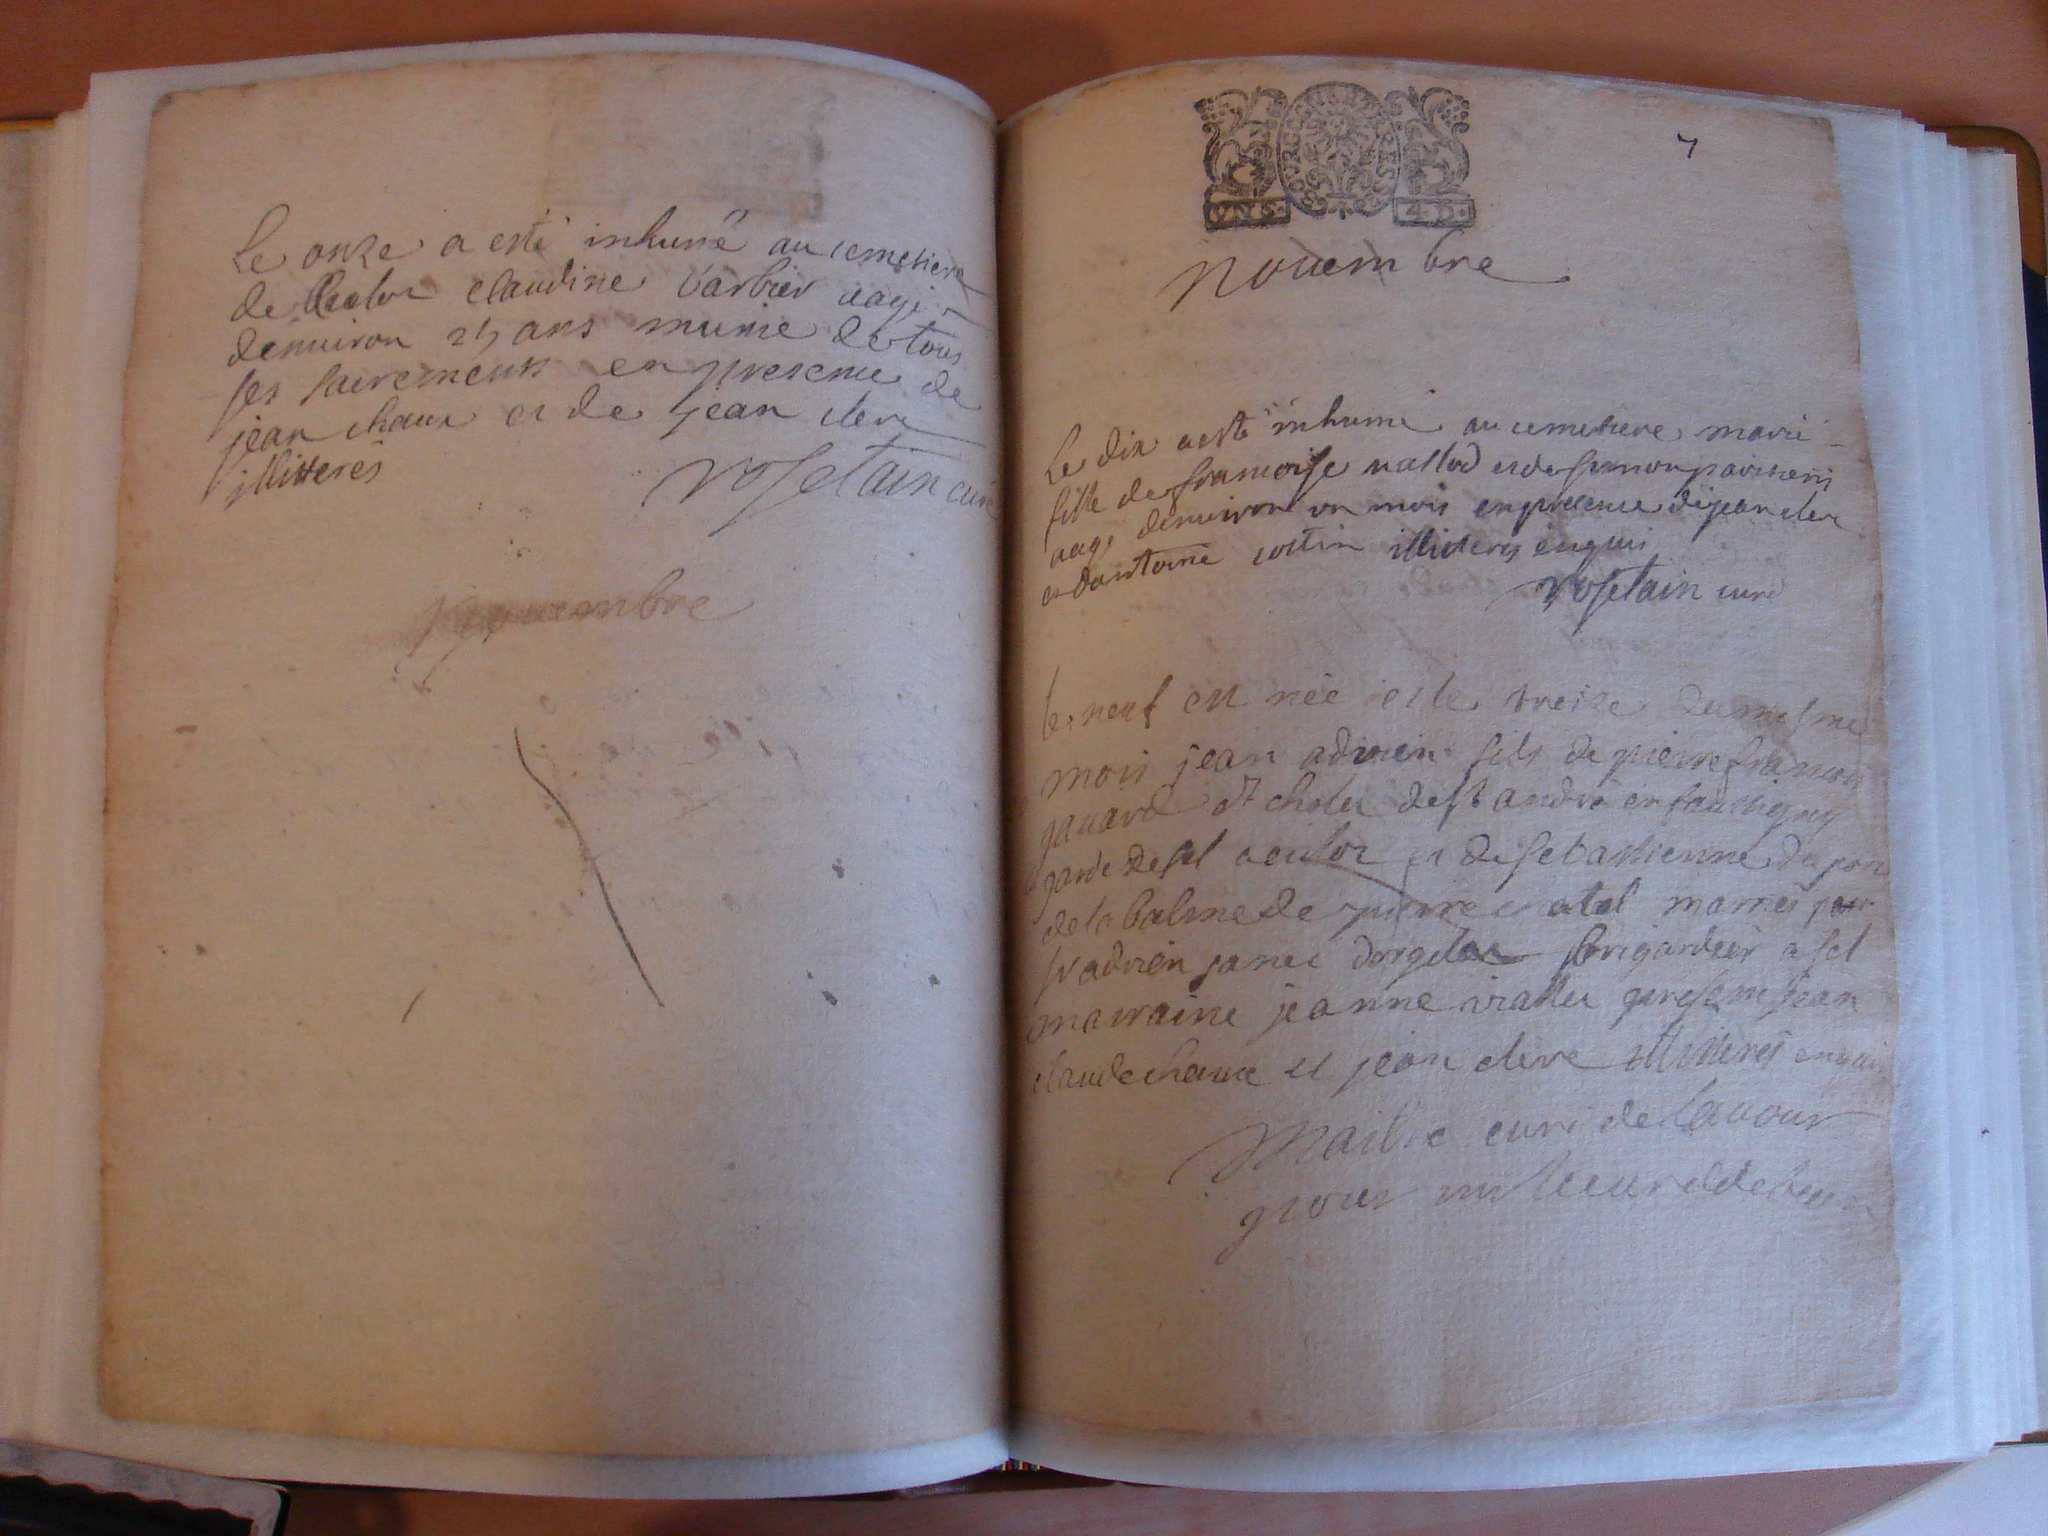 Le onze a esté inhumé au cemetiere
de Culoz claudine barbier aagé
denuiron 25 ans munie de tous
ses sacrements en presence de
jean chaux et de jean clerc
illitterés
rosetain curé
Nouembre
7
VN S. 4 D.
nouembre
Le dix a esté inhumé au cemetiere marie
fille de francoise uallod et de simon
aagé denuiron un mois en presence de jean clerc
et dantoine cottin illiterés enquis
rosetain curé
le neuf est née et le treize du mesme
mois jean adrien fils de pierre francois
jauard de st andré en faussigny
garde de sel a culoz et de sebastienne du
de la balme de pierre chatel mariés par
sr adrien brigardier a sel
marraine jeanne uiallet presents jean
claude chaux et jean clerc illiterés enquis
Maitre curé de Lauour
pour